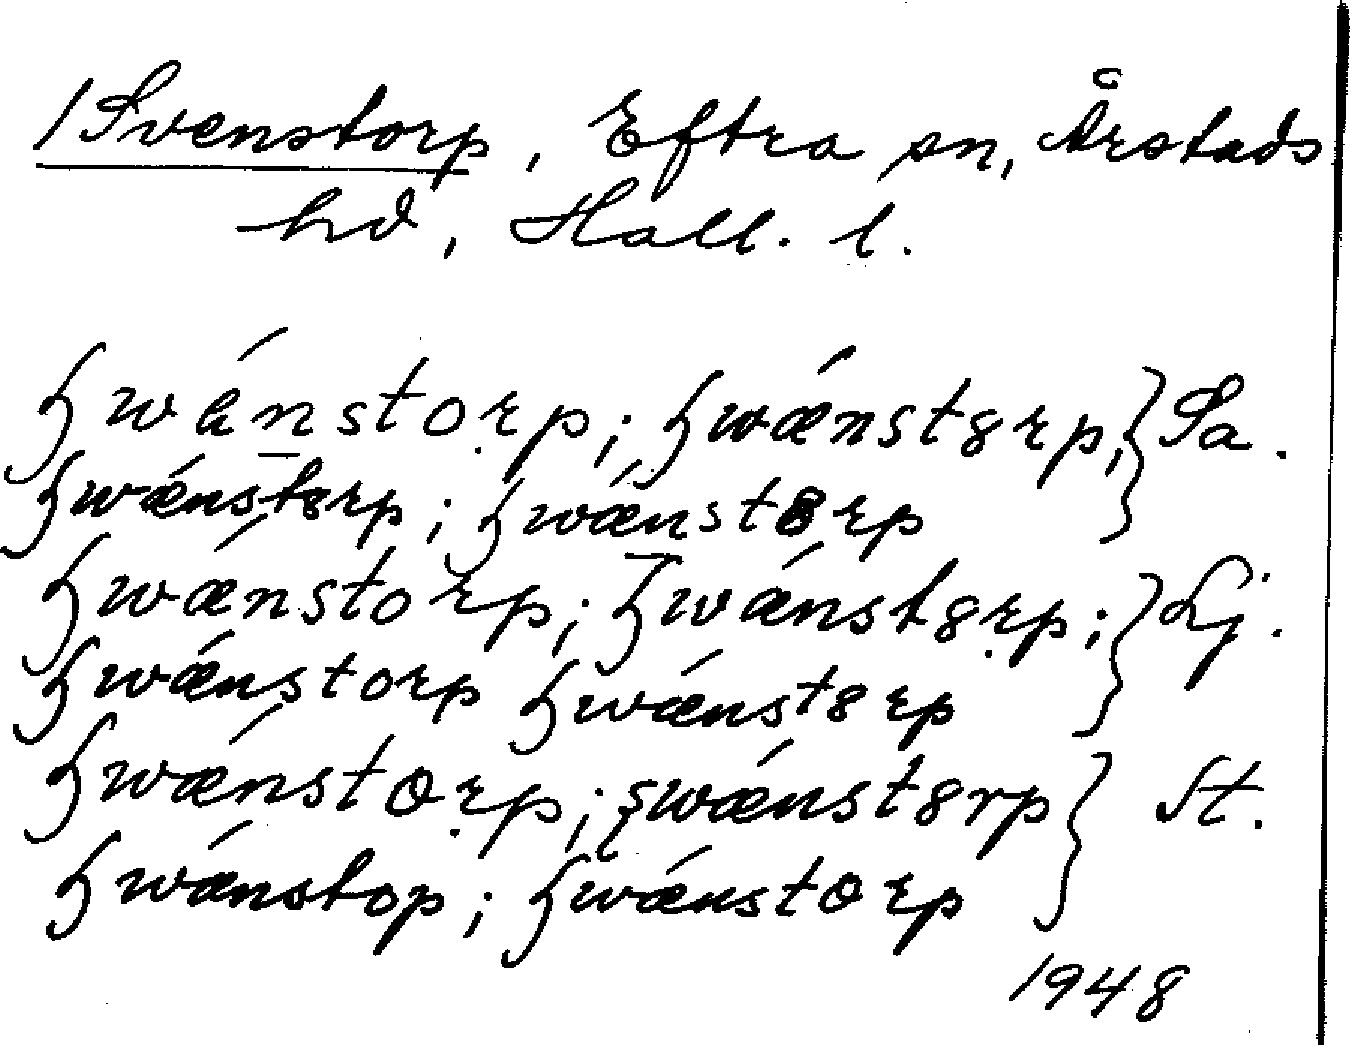 /Svenstorp, Eftra sn, Årstads
hd, Hall. l.
ɧwǽnstorp; ɧwænst8rp, } Sa.
ɧwǽnst8rp; ɧwǽnst8rp
ɧwǽnstorp; ɧwǽnst8rp; } Lj.
ɧwǽnstorp ɧwǽnst8rp
ɧwǽnstorp; swǽnst8rp } St.
ɧwǽnstop; ɧwǽnstorp
1948